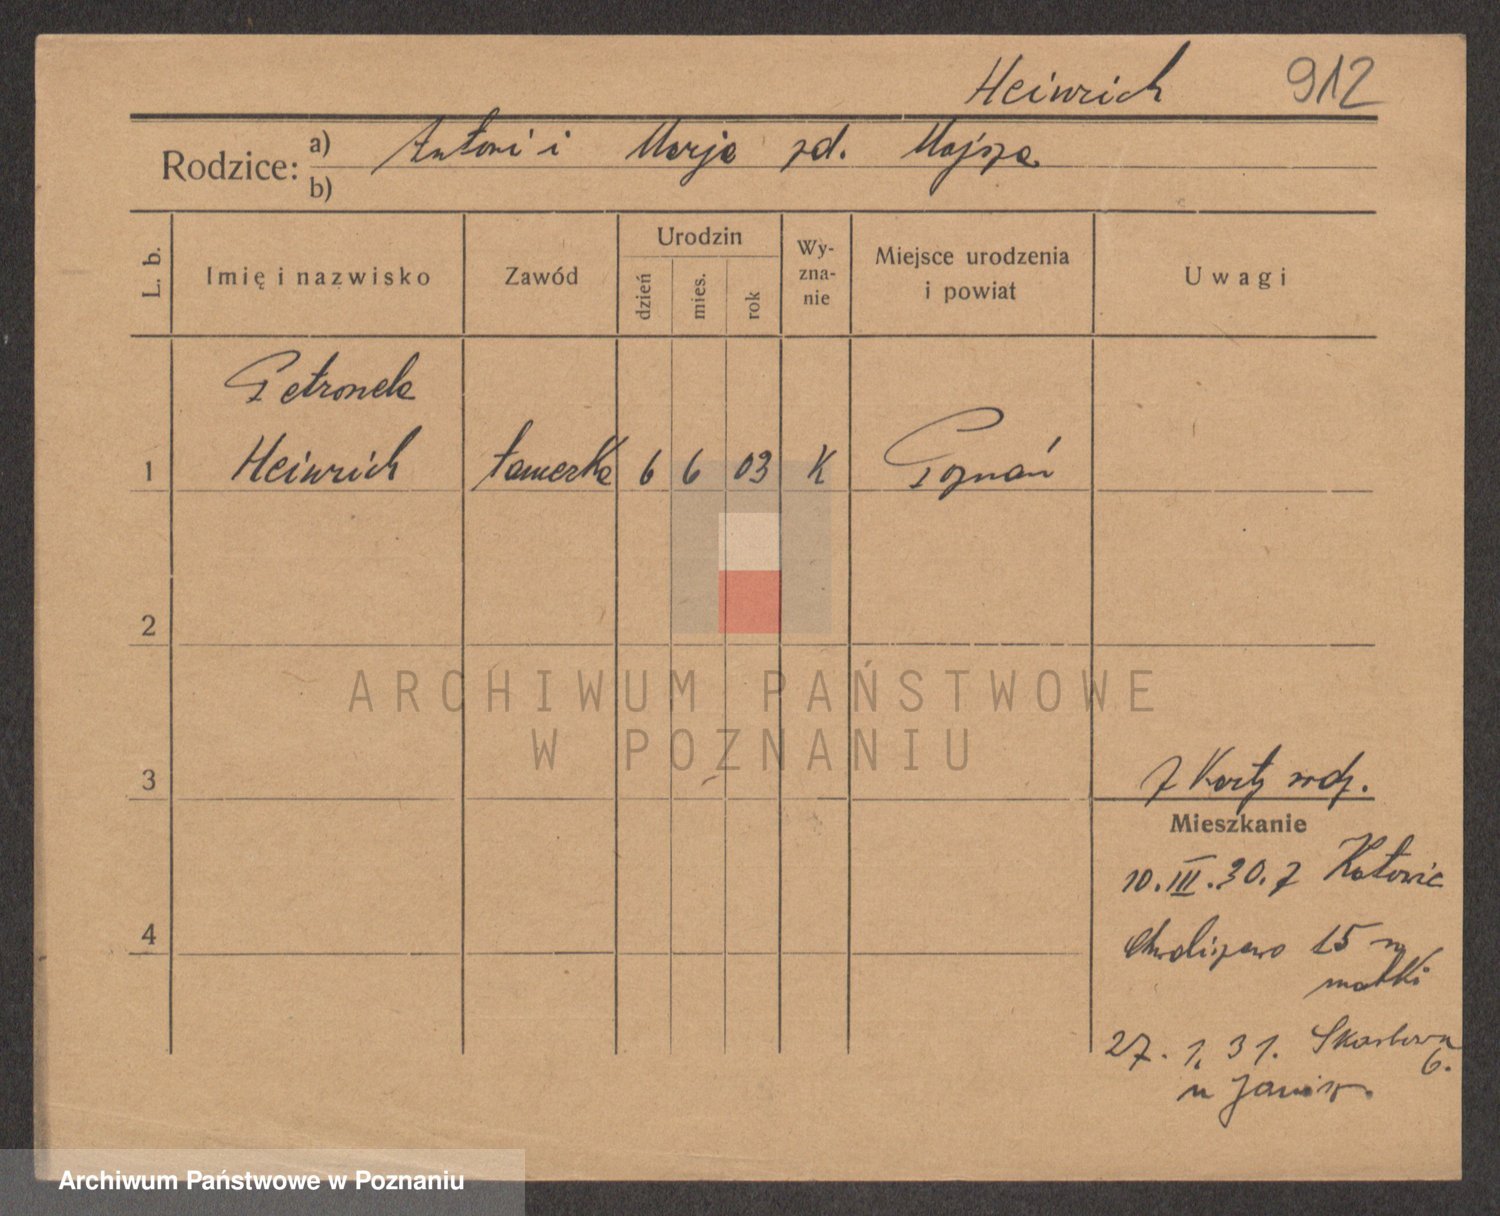 Heinrich 912
Rodzice: a) Antoni i Marja zd. Majsza
b)
L. b.
Imię i nazwisko
Zawód
Urodzin
dzień
mies.
rok
Wy-
zna-
nie
Miejsce urodzenia
i powiat
Uwagi
Petronela
1 Heinrich 6 6 03 K Poznań
2
ARCHIWUM PAŃSTWOWE
W POZNANIU
3
z Karty rodz.
Mieszkanie
10.III.30. z Katowic
Chwaliszewo 15 u
matki
4
27. 1. 31. Skarbowa
6.
u
Archiwum Państwowe w Poznaniu